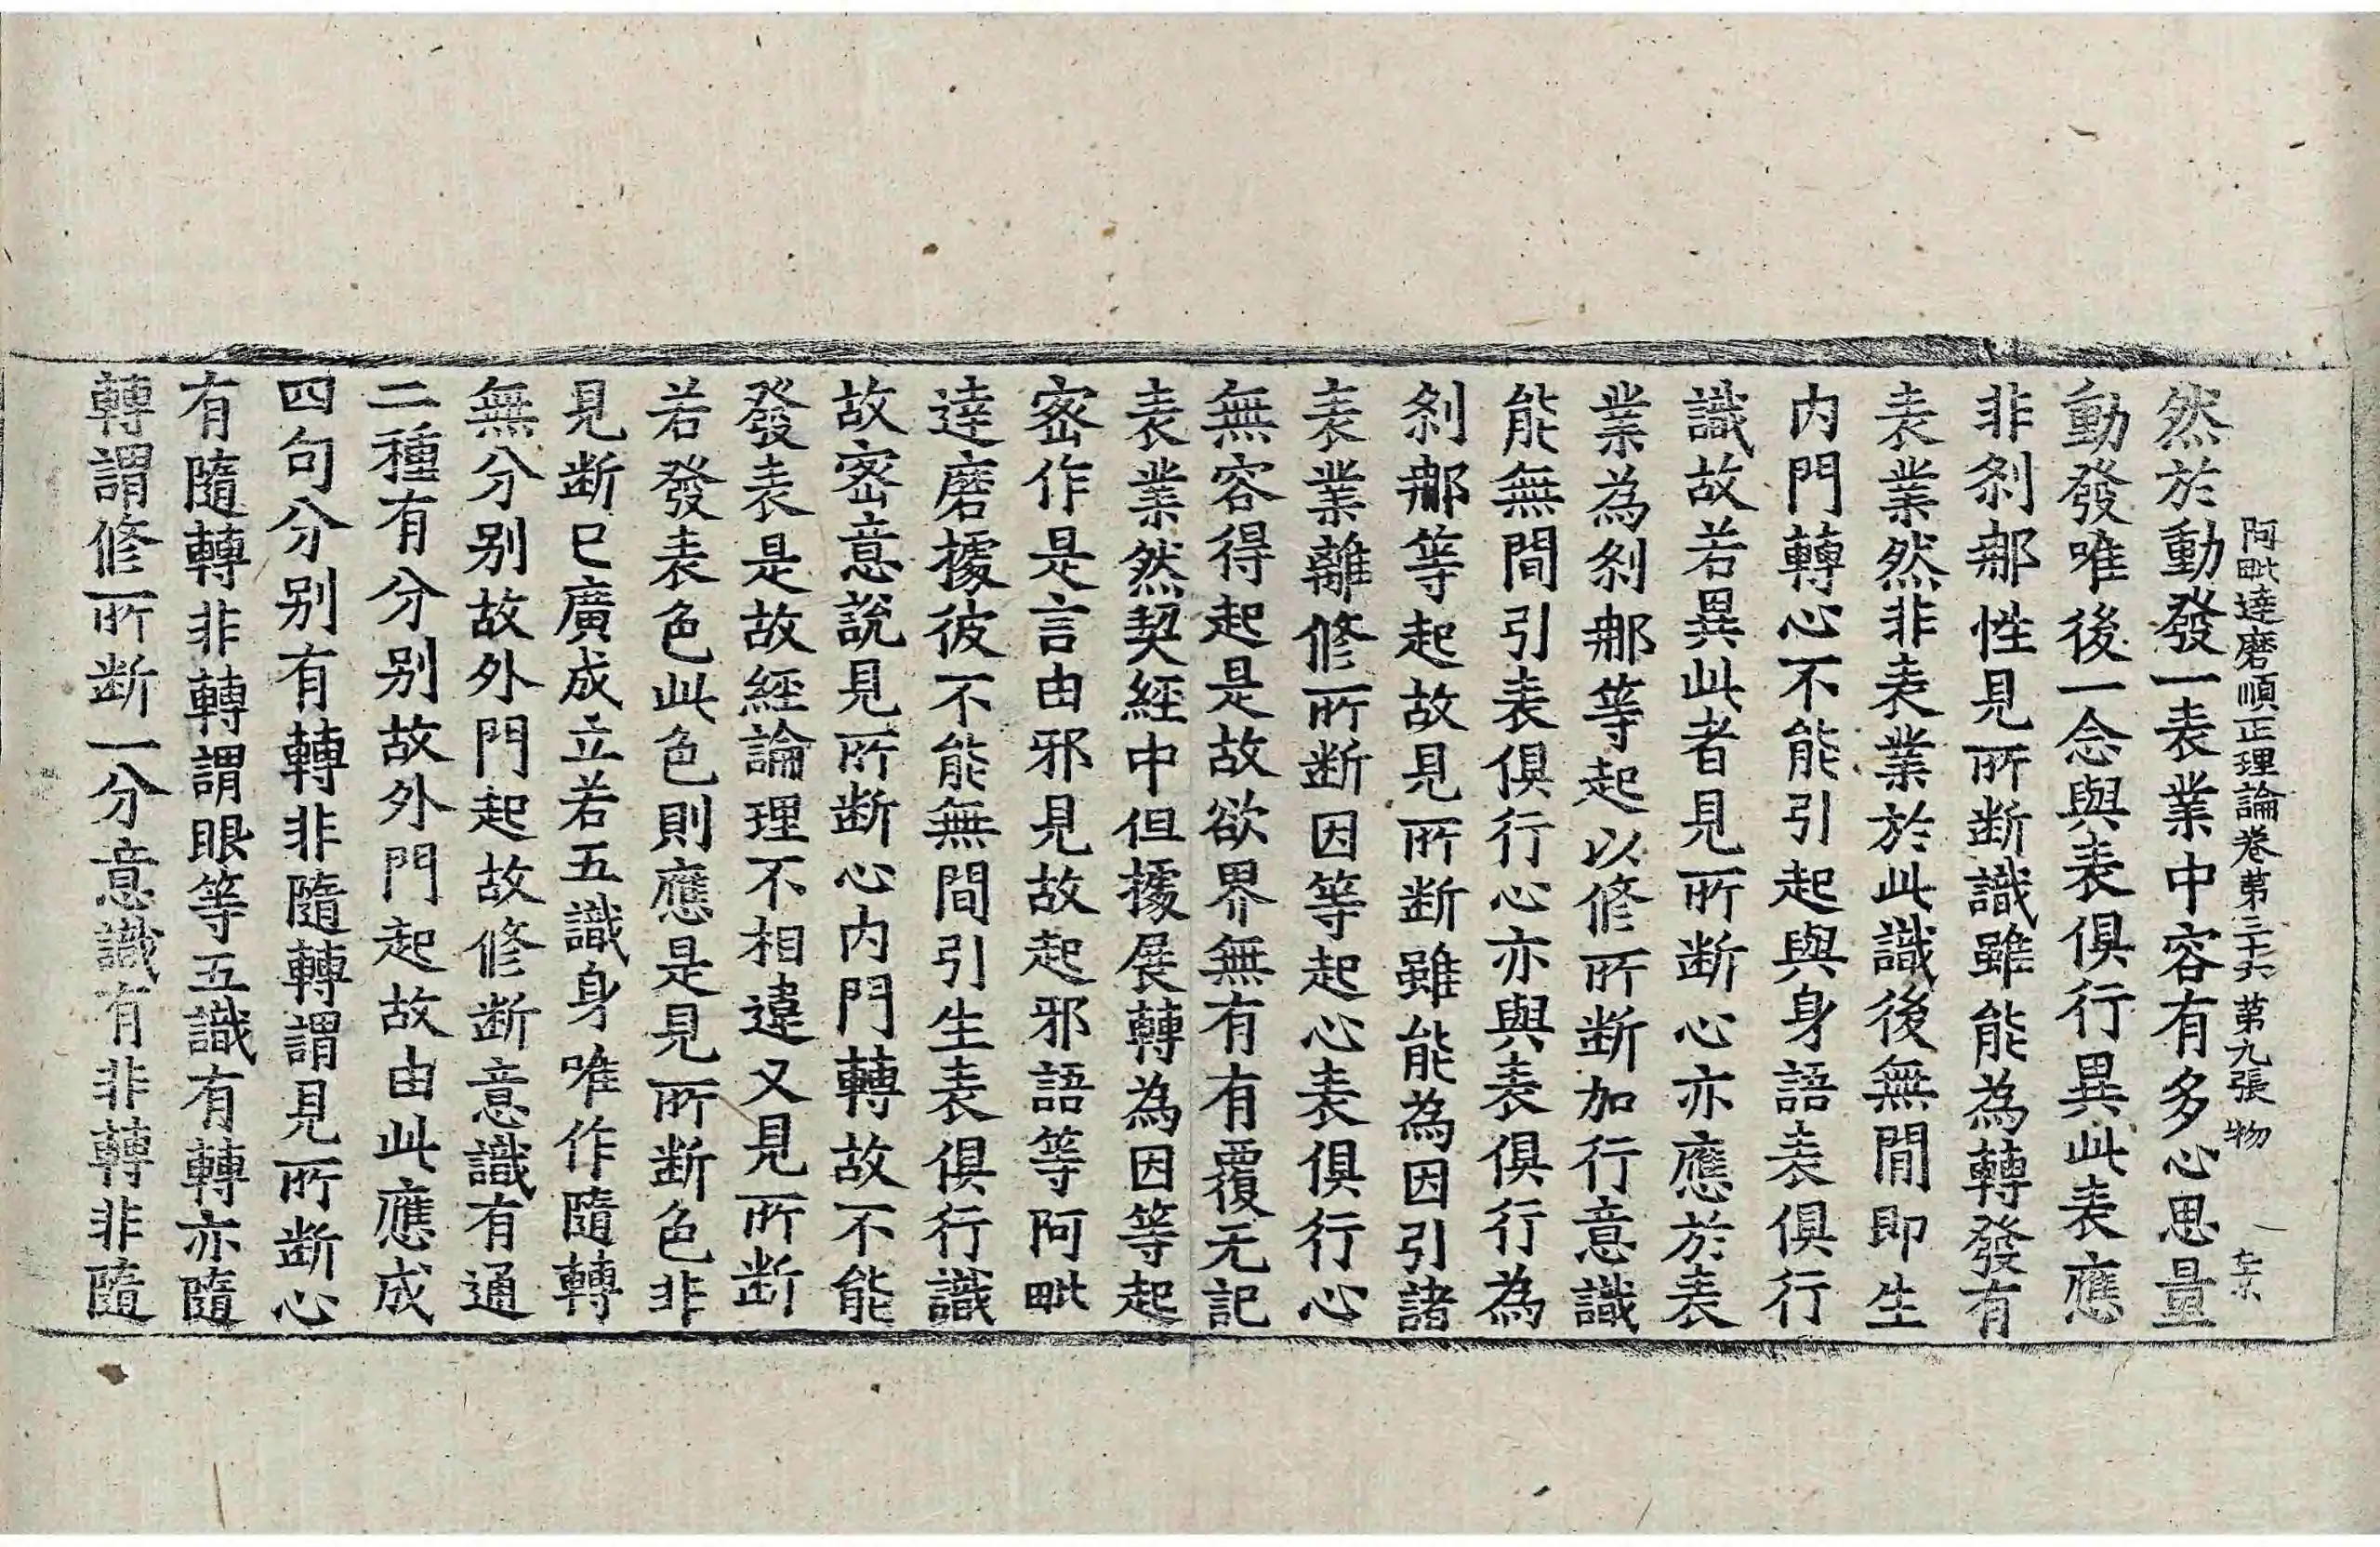 阿毗達磨順正理論卷第三十六 第九張 物
然於動發一表業中容有多心思量
動發唯後一念與表俱行異此表應
非剎那性見所断識雖能為轉發有
表業然非表業於此識後無間即生
内門轉心不能引起與身語表俱行
識故若異此者見所断心亦應於表
業為剎那等起以修所断加行意識
能無間引表俱行心亦與表俱行為
剎那等起故見所断雖能為因引諸
表業離修所断因等起心表俱行心
無容得起是故欲界無有有覆无記
表業然契經中但據展轉為因等起
密作是言由邪見故起邪語等阿毗
達磨據彼不能無間引生表俱行識
故密意說見所断心内門轉故不能
發表是故經論理不相違又見所断
若發表色此色則應是見所断色非
見断已廣成立若五識身唯作隨轉
無分别故外門起故修断意識有通
二種有分别故外門起故由此應成
四句分别有轉非隨轉謂見所断心
有隨轉非轉謂眼等五識有轉亦隨
轉謂修所断一分意識有非轉非隨